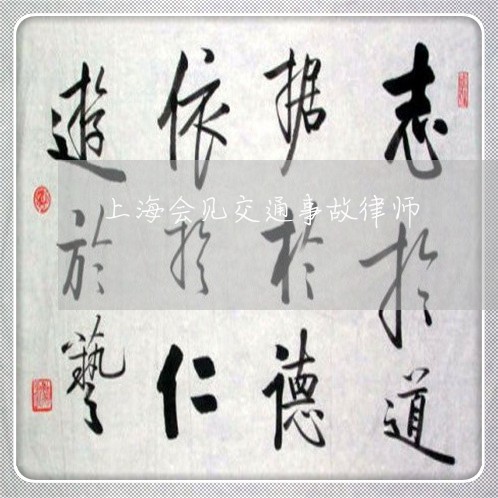 志於道
据於德
依於仁
遊於藝
上海会见交通事故律师